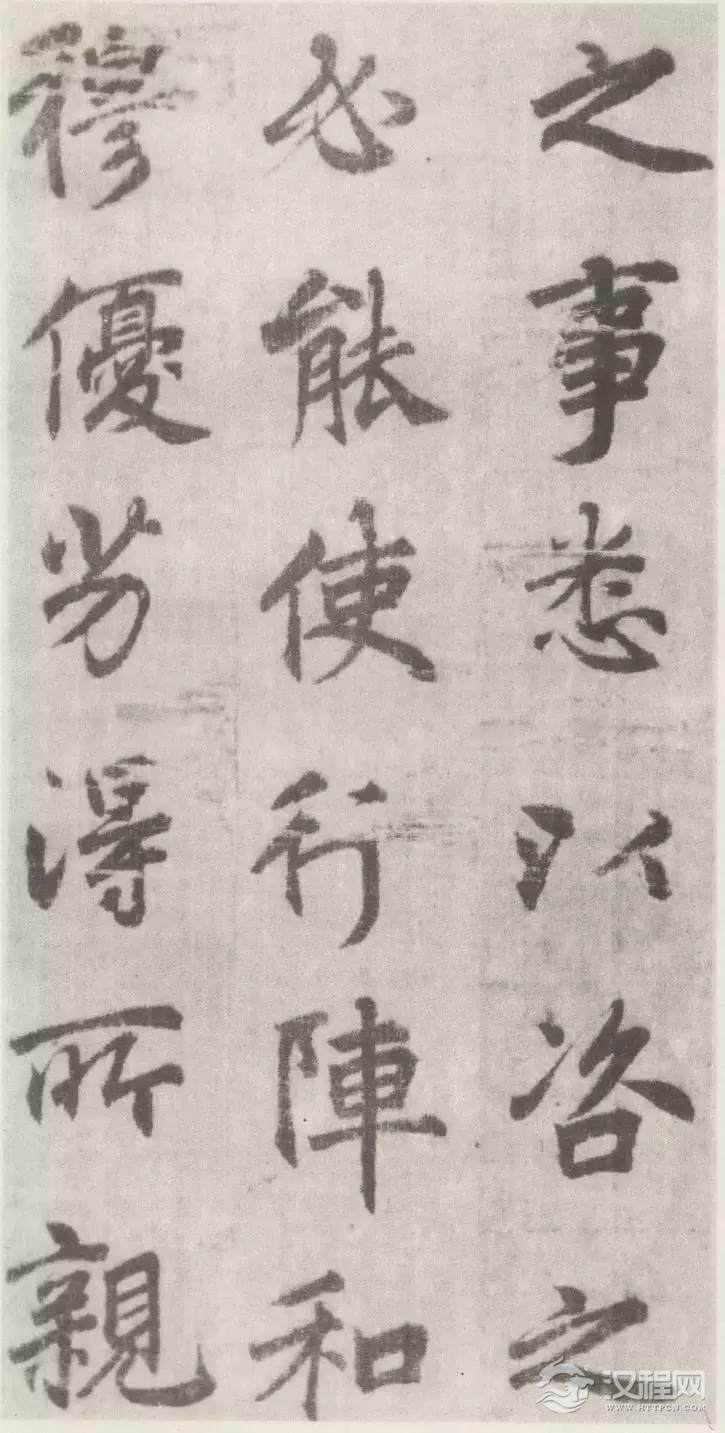 之事悉以咨之
必能使行陣和
穆優劣得所親
汉程网
WWW.HTTPCN.COM